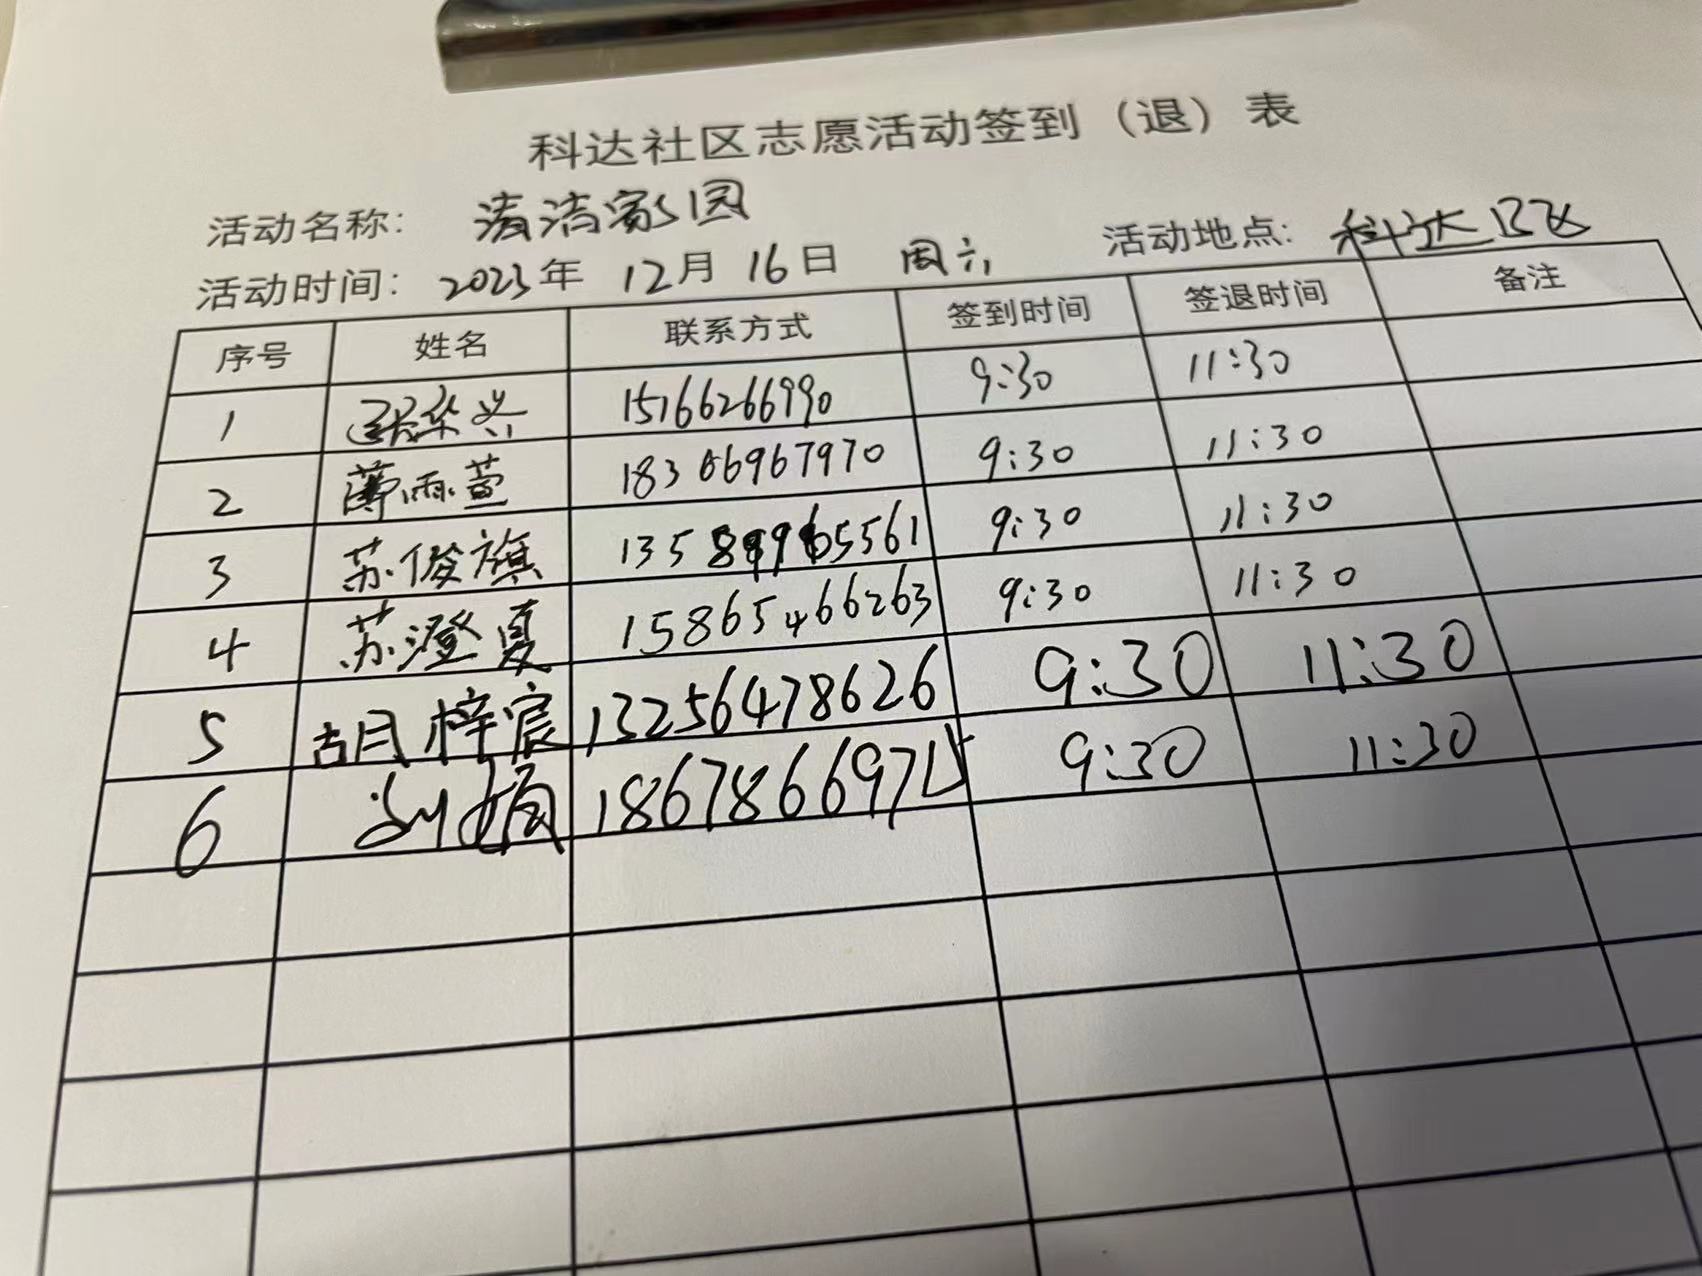 科达社区志愿活动签到（退）表
活动名称： 清洁家园
活动时间： 2023年 12月 16日 周六 活动地点: 科达
序号 姓名 联系方式 签到时间 签退时间 备注
1 15166266990 9:30 11:30
2 薄雨萱 18366967970 9:30 11:30
3 苏俊旗 9:30 11:30
4 苏澄夏 15865466263 9:30 11:30
5 胡梓宸 13256478626 9:30 11:30
6 刘娟 18678669715 9:30 11:30